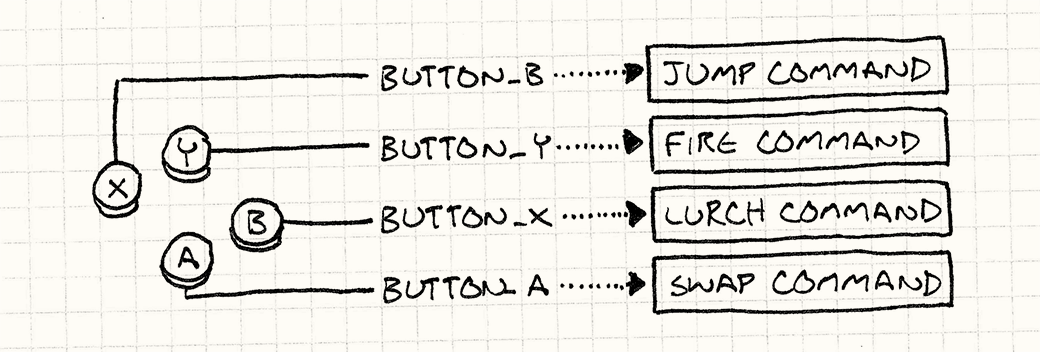 BUTTON_B JUMP COMMAND
Y BUTTON_Y FIRE COMMAND
X
B BUTTON_X LURCH COMMAND
A BUTTON_A SWAP COMMAND